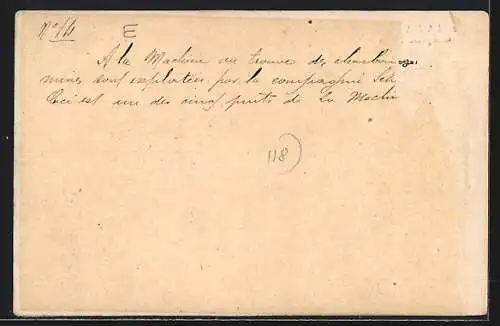 N° 14
E
A la Machine se trouve des charbonnages,
mines sont exploitées par la compagnie Sch
Ceci est un des cinq puits de La Machi
118)